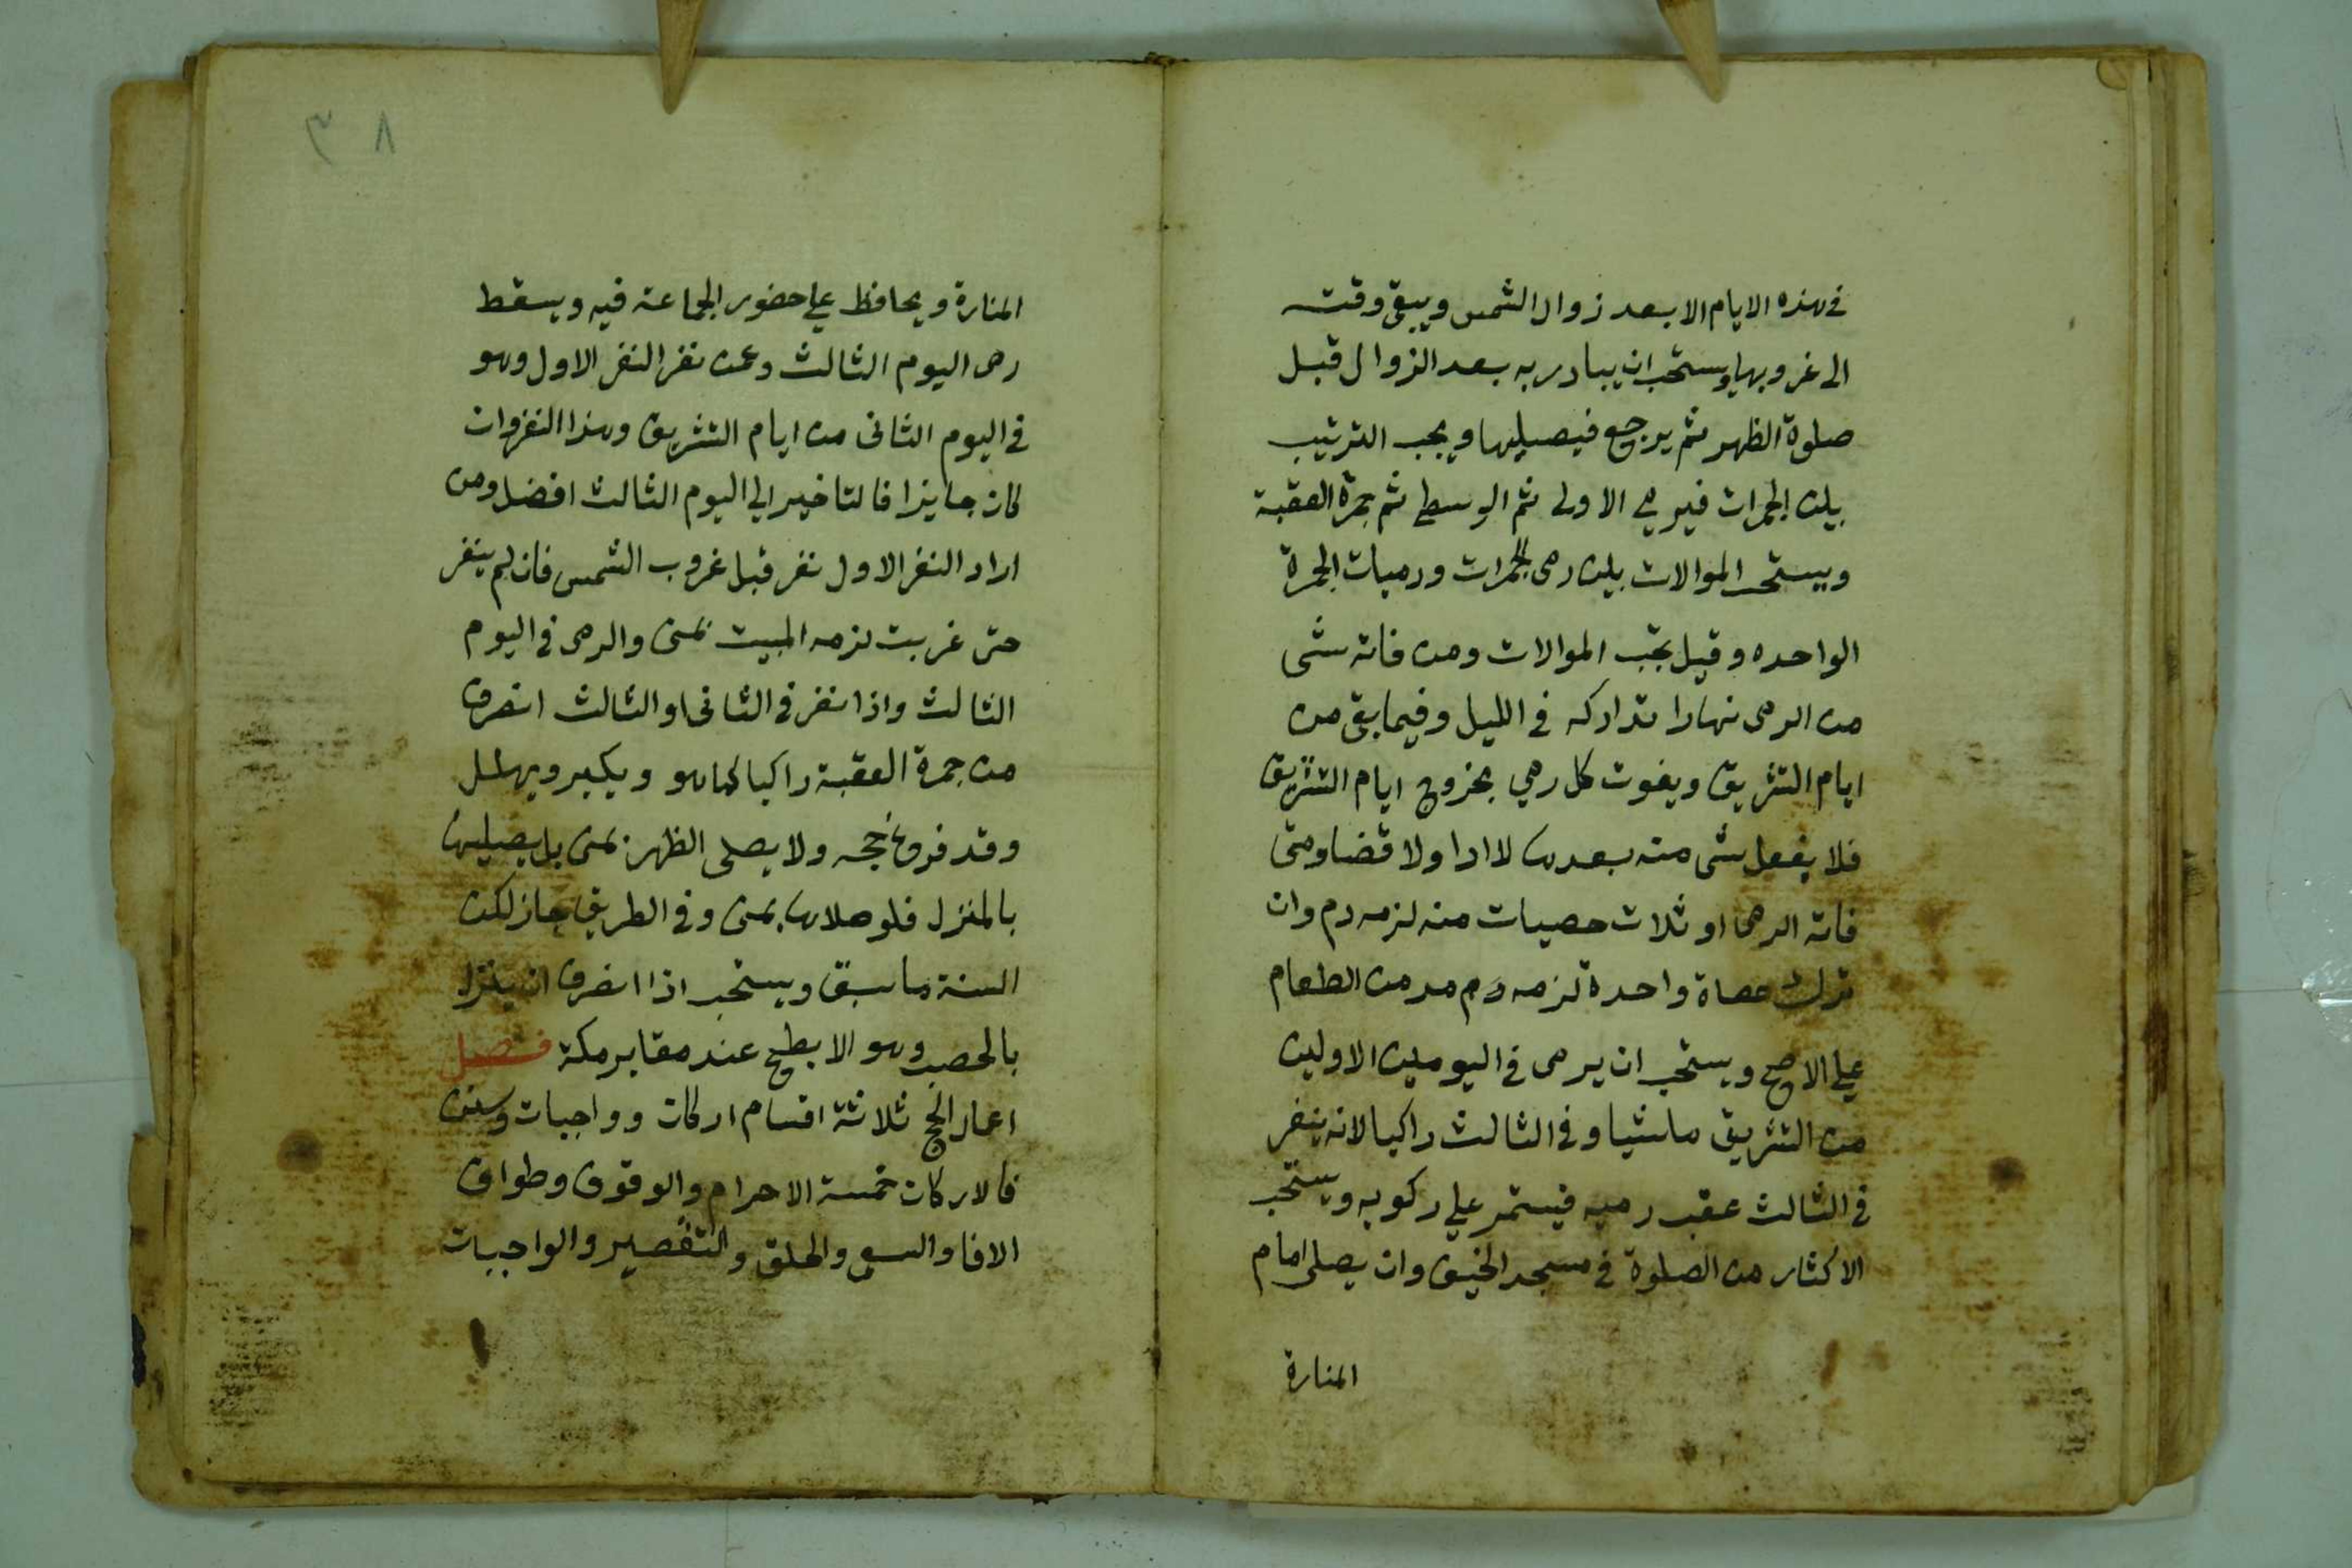 في هذه الايام الا بعد زوال الشمس ويبقى وقته
الى غروبها ويستحب ان يبادر به بعد الزوال قبل
صلوة الظهر ثم يرجع فيصليها ويجب الترتيب
بين الجمرات فيرمي الاولى ثم الوسطى ثم جمرة العقبة
ويستحب الموالات بين رمى الجمرات ورميات الجمرة
الواحده وقيل تجب الموالات ومن فاته شى
من الرمى نهارا تداركه في الليل وفيما بقى من
ايام التشريق ويفوت كل رمي بخروج ايام التشريق
فلا يفعل شى منه بعدها لا ادا ولا قضا ومتى
فاته الرمى او ثلاث حصيات منه لزمه دم وان
ترك حصاة واحدة لزمه دم مد من الطعام
على الاصح ويستحب ان يرمى في اليومين الاولين
من التشريق ماشيا وفي الثالث راكبا لانه ينفر
في الثالث عقب رميه فيستمر على ركوبه ويستحب
الاكثار من الصلوة في مسجد الخيف وان يصلى امام
المنارة
٣٨
المنارة ويحافظ على حضور الجماعة فيه ويسقط
رمى اليوم الثالث وعمن نفر النفر الاول وهو
في اليوم الثانى من ايام التشريق وهذا النفر وان
كان جايزا فالتاخير الى اليوم الثالث افضل ومن
اراد النفر الاول نفر قبل غروب الشمس فان لم ينفر
حتى غربت لزمه المبيت بمنى والرمى في اليوم
الثالث واذا نفر في الثانى او الثالث انصرف
من جمرة العقبة راكبا كما هو ويكبر ويهلل
وقد فرغ حجه ولا يصلى الظهر بمنى بل يصليها
بالمنزل فلو صلاها بمنى وفي الطريق جاز لكن
السنة ما سبق ويستحب اذا انصرف ان ينزل
بالحصب وهو الابطح عند مقابر مكة فصل
اعمال الحج ثلاثة اقسام اركان وواجبات وسنن
فالاركان خمسة الاحرام والوقوف وطواف
الافا والسعي والحلق والتقصير والواجبات